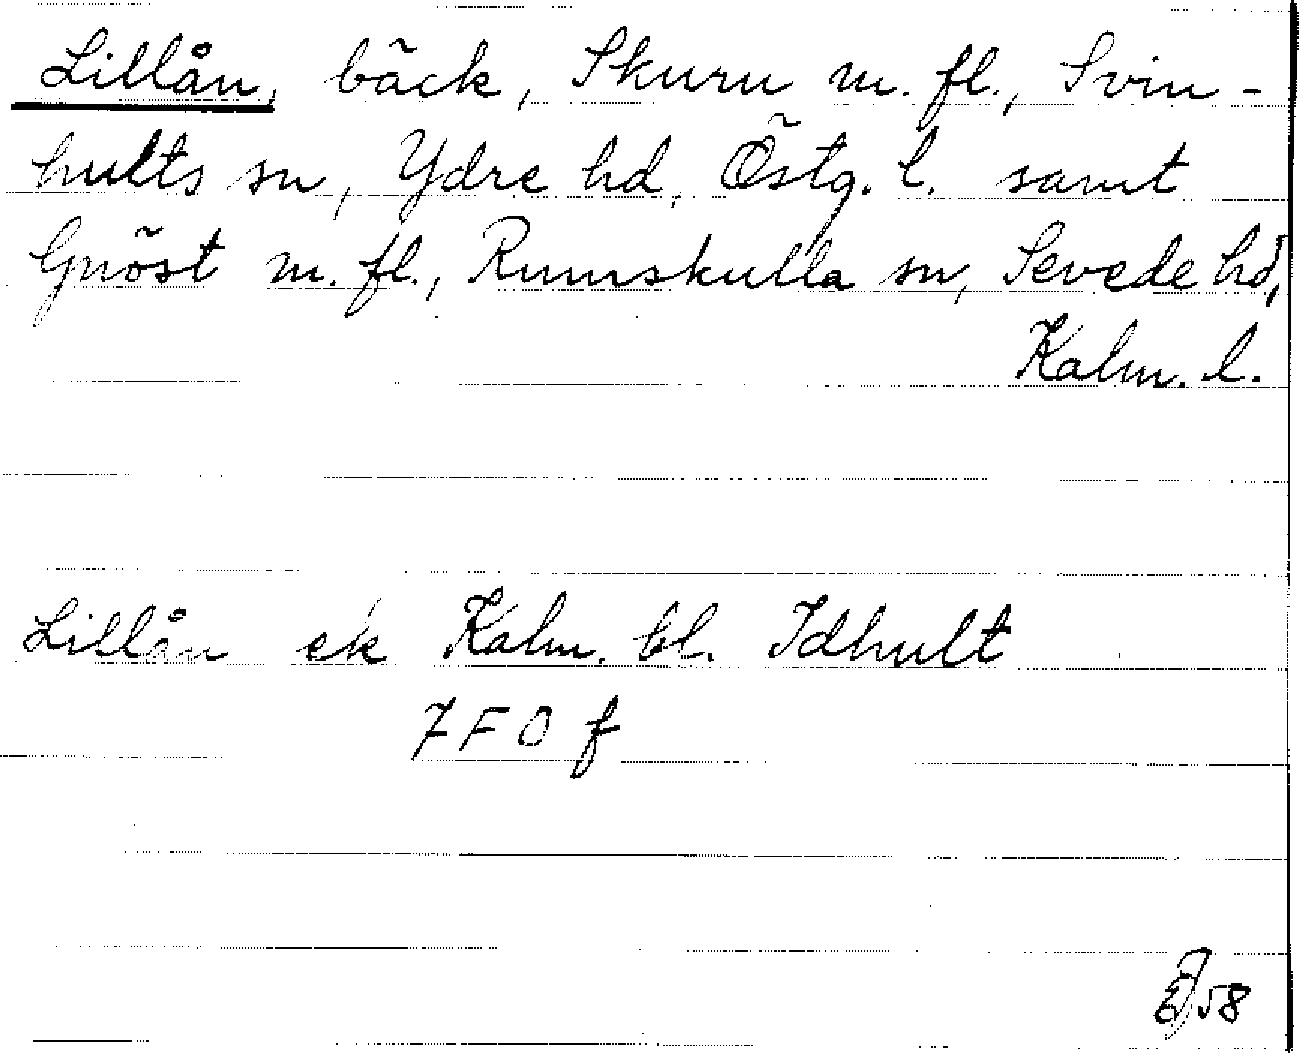 Lillån, bäck, Skuru m. fl., Svin-
hults sn, Ydre hd, Östg. l. samt
Gnöst m. fl., Rumskulla sn, Sevede hd,
Kalm. l.
Lillån ek Kalm. bl. Idhult
7 F 0 f
58